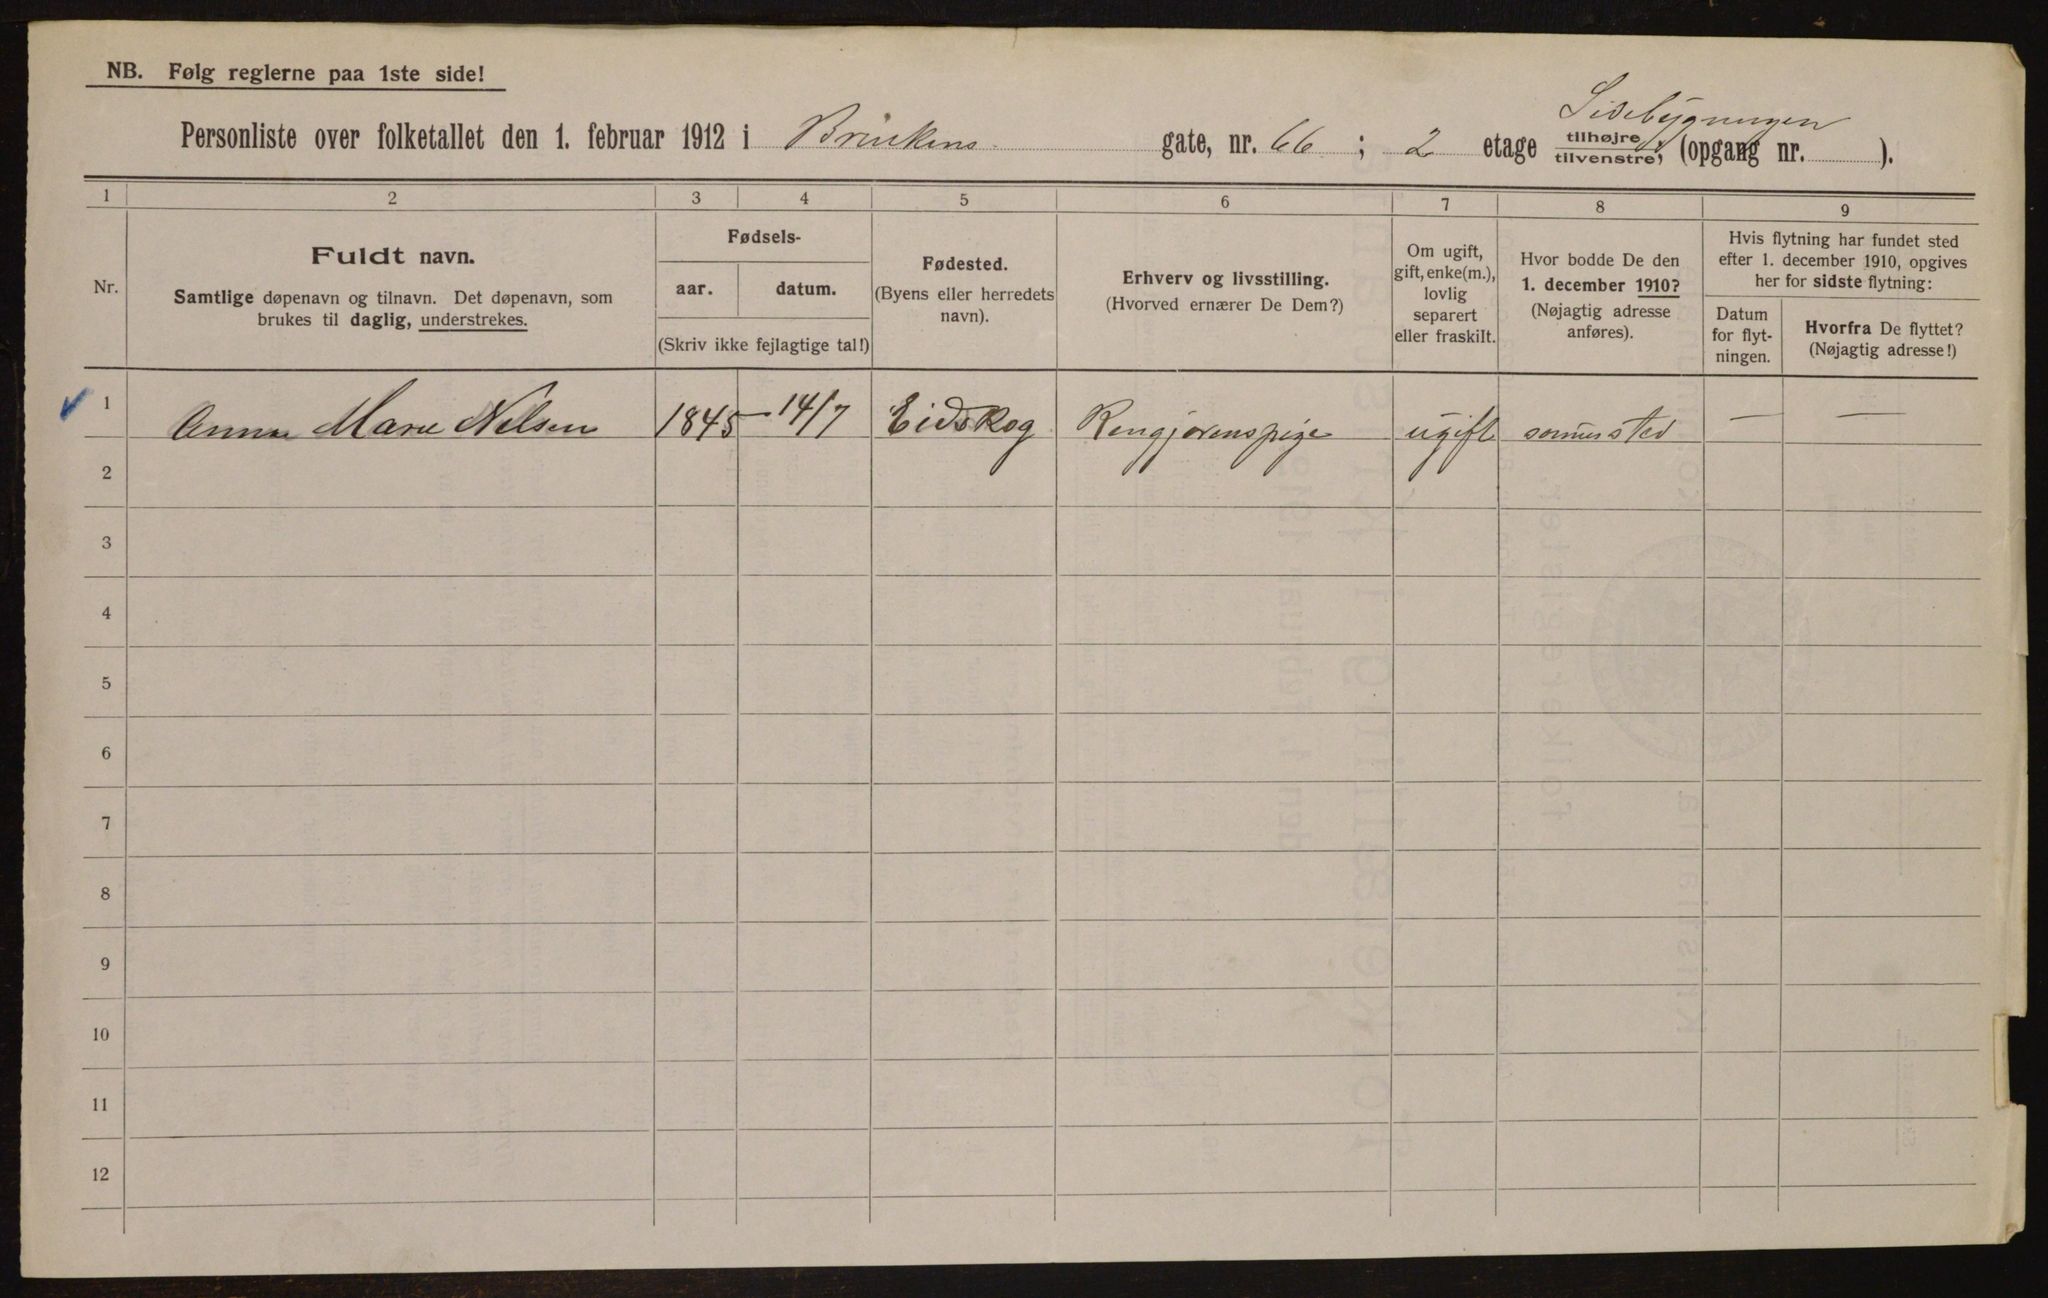 NB. Følg reglerne paa 1ste side!
Sidebygningen
Personliste over folketallet den 1. februar 1912 i Brinkens gate, nr. 66 ; 2 etage tilhøjre/tilvenstre, (opgang nr. ).
1 2 3 4 5 6 7 8 9
Nr.
Fuldt navn.
Samtlige døpenavn og tilnavn. Det døpenavn, som
brukes til daglig, understrekes.
Fødsels-
aar. datum.
(Skriv ikke fejlagtige tal!)
Fødested.
(Byens eller herredets
navn).
Erhverv og livsstilling.
(Hvorved ernærer De Dem?)
Om ugift,
gift, enke(m.),
lovlig
separert
eller fraskilt.
Hvor bodde De den
1. december 1910?
(Nøjagtig adresse
anføres).
Hvis flytning har fundet sted
efter 1. december 1910, opgives
her for sidste flytning:
Datum
for flyt-
ningen.
Hvorfra De flyttet?
(Nøjagtig adresse!)
1 Anna Marie Nelsen 1845 – 14/7 Eidskog Rengjørenspige ugift sammested — —
2
3
4
5
6
7
8
9
10
11
12